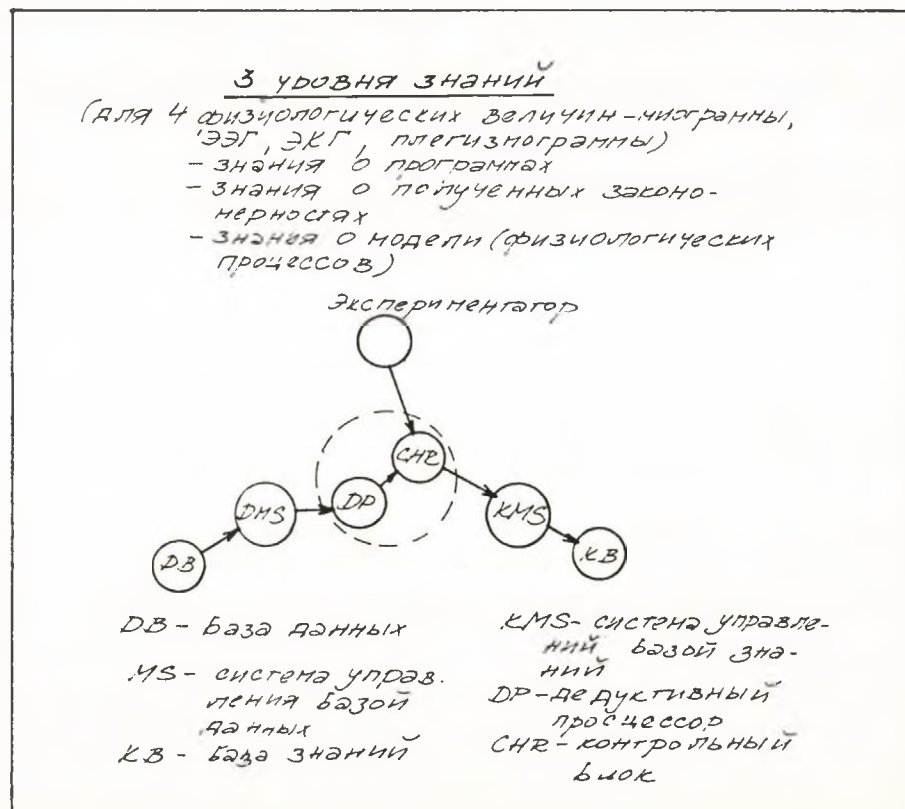 3 уровня знаний
(для 4 физиологических величин - миограммы,
ЭЭГ, ЭКГ, плегизмограммы)
- знания о программах
- знания о полученных законо-
мерностях
- знания о модели (физиологических
процессов)
Экспериментатор
CHR
DP
DMS
KMS
DB
KB
DB - база данных
MS - система управ.
ления базой
данных
KB - база знаний
KMS - система управле-
ний базой зна-
ний
DP - дедуктивный
просцессор
CHR - контрольный
блок